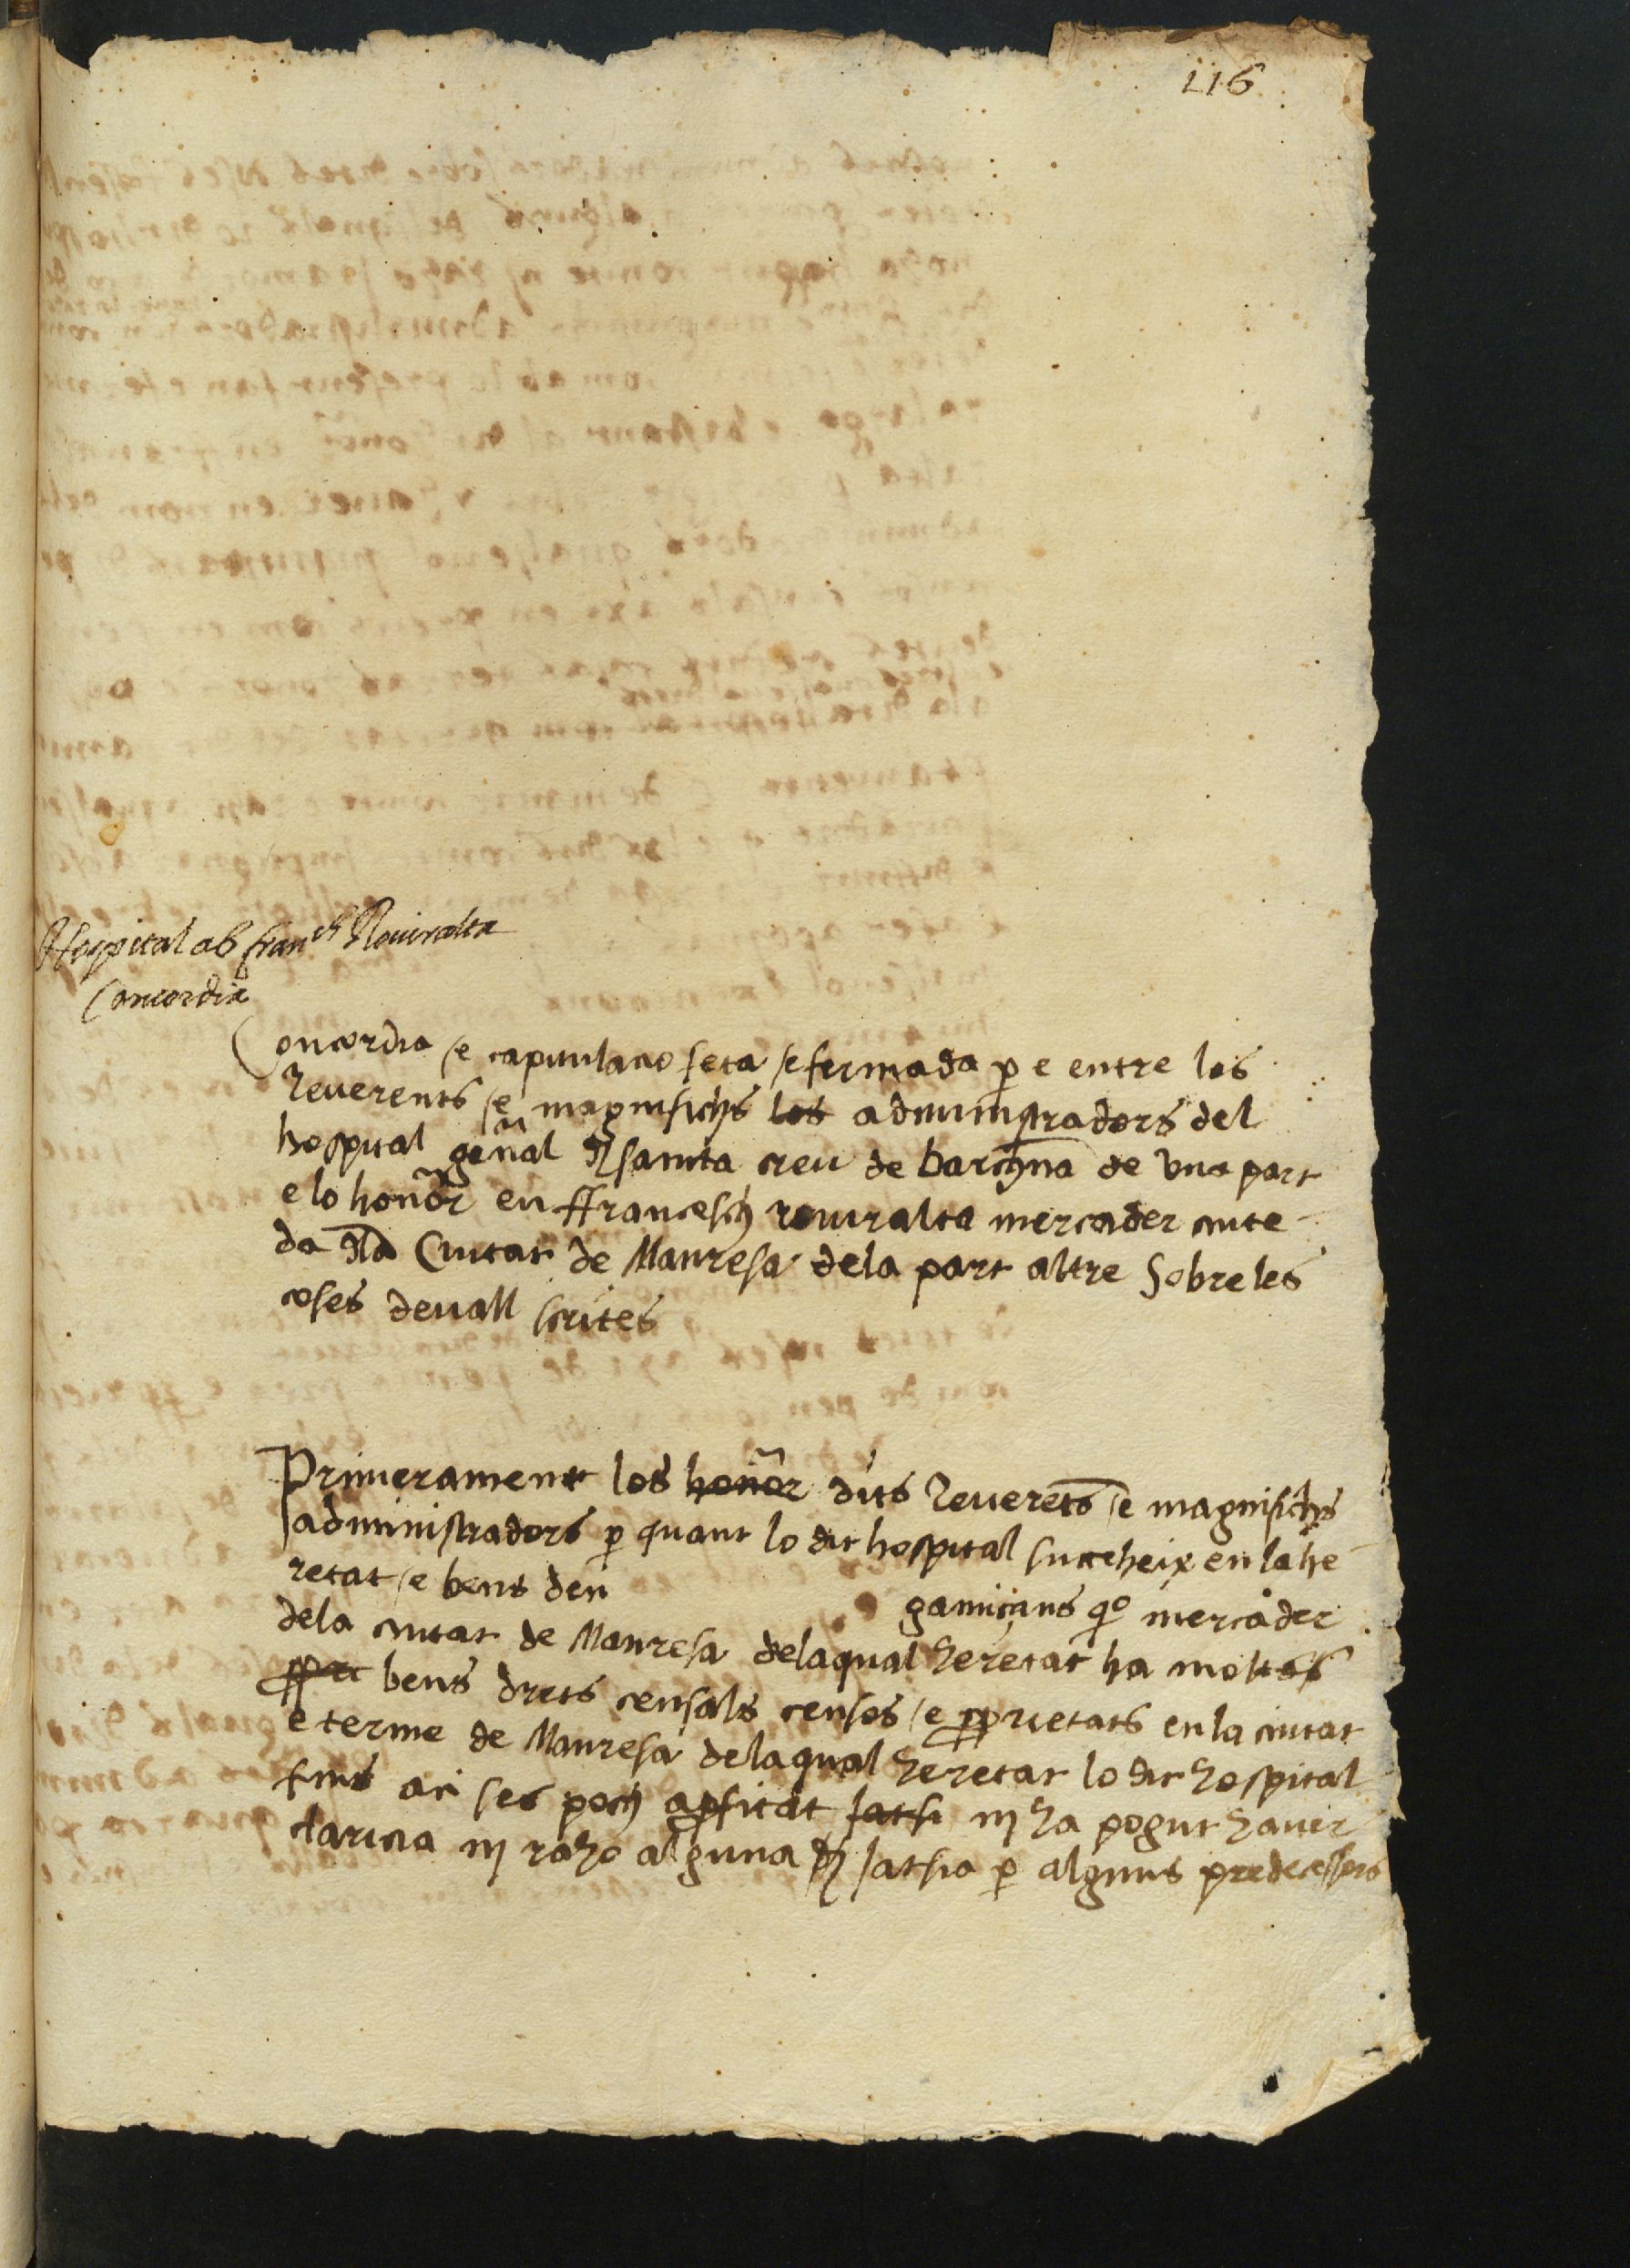 116
Hospital ab franch Rouiralta
Concordia
Concordia e capitulacio feta e fermada p e entre los
Reuerents e magnifichs los administradors del
hospital general dl sancta creu de barchna de vna part
e lo honor en ffrancesch rouiralta mercader ciute
da dla Ciutat de Manresa dela part altre sobre les
coses deuall scrites
Primerament los honor dits Reuerets e magnifichs
administradors p quant lo dit hospital succeheix en la he
retat e bens den
gamiçans qo mercader
dela ciutat de Manresa dela qual heretat ha moltes
ppri bens drets censals censos e pprietats en la ciutat
e terme de Manresa dela qual heretat lo dit hospital
fins aci ses poch apfitat jatsi ni ha pogut hauer
claricia ni raho alguna jatsia p alguns predecessors